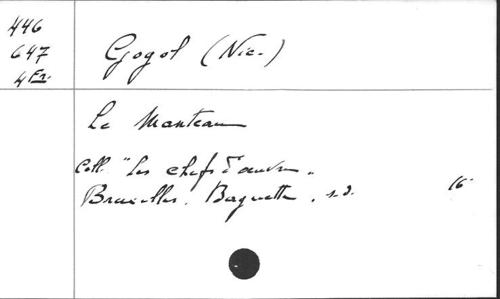 446
647
4 Fr.
Gogol (Nic.)
Le Manteau
Coll. "Les chefs d'œuvre"
Bruxelles. Baguette, s.d. 16°